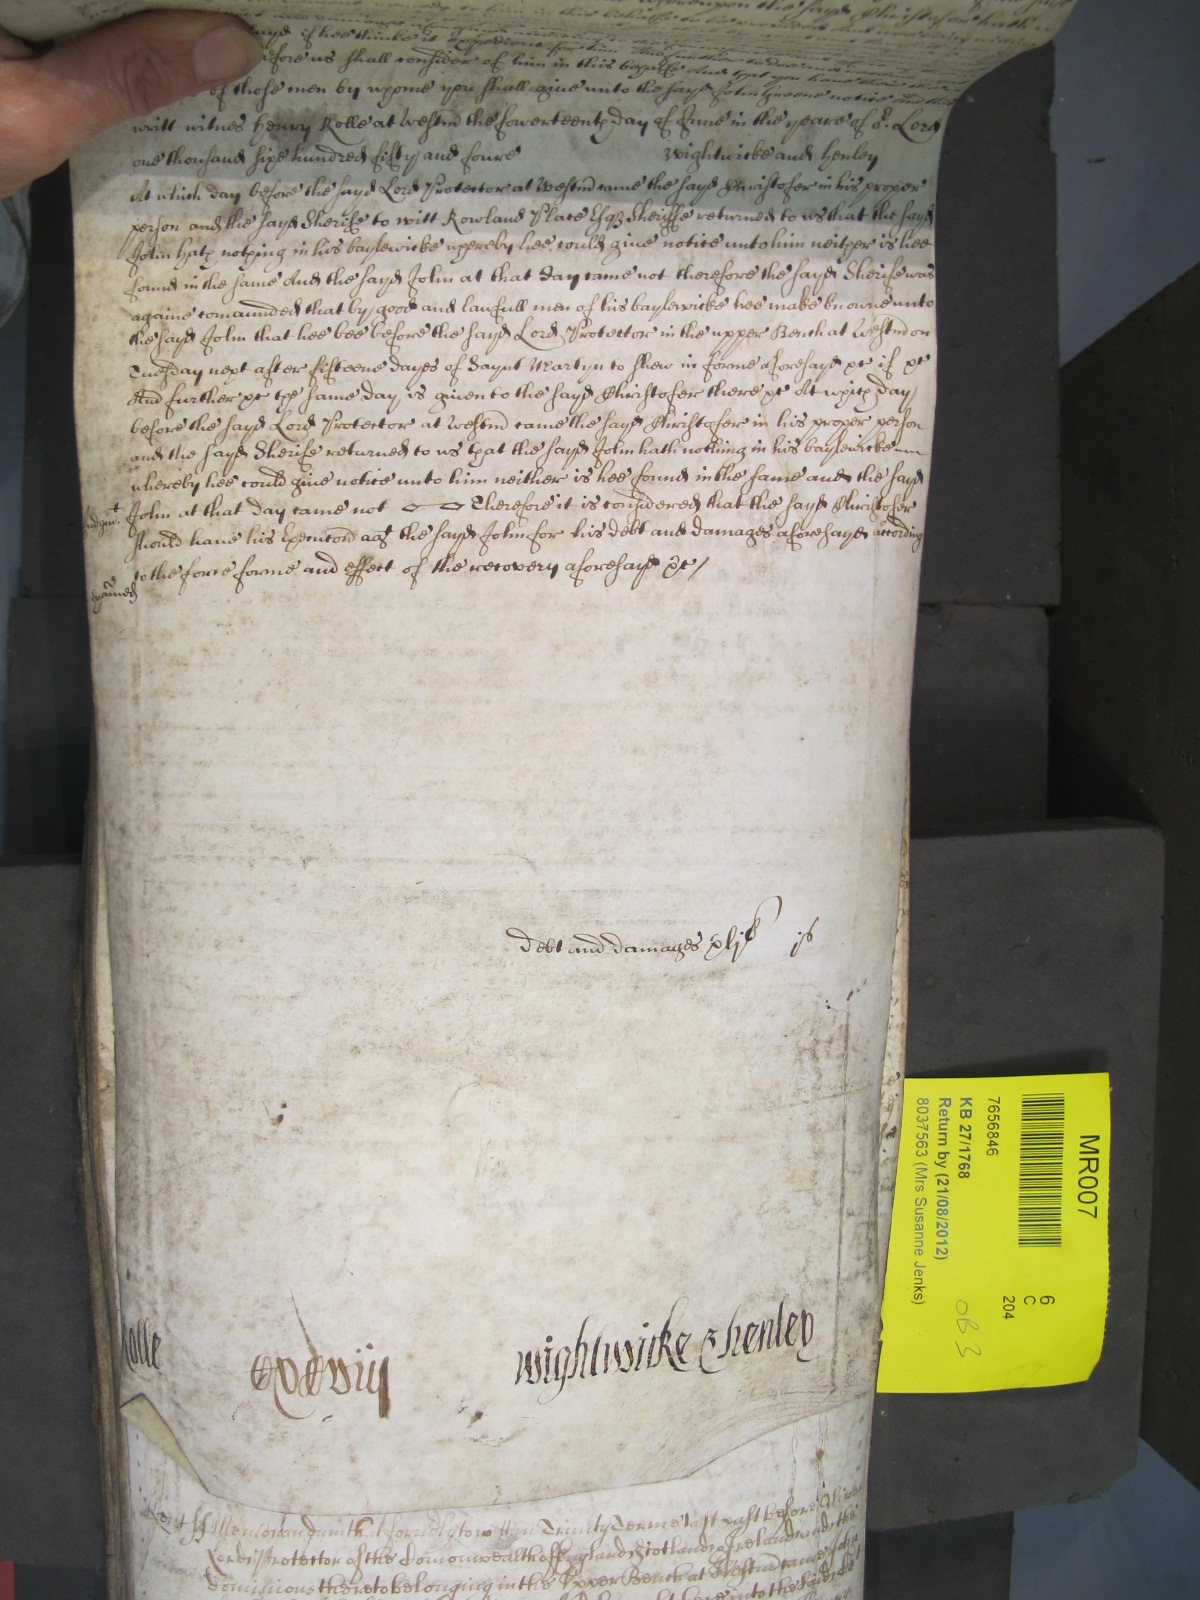 sayd if hee thinke it expedient for him And further
before us shall consider of him in this behalfe And that you have there
of those men by whome you shall give unto the sayd John Greene notice and this
writt witnes Henry Rolle at Westm the fowerteenth day of June in the yeare of or. Lord
one thousand sixe hundred fifty and foure Wightwicke and Henley
At which day before the sayd Lord Protector at Westm came the sayd Christofer in his proper
person and the sayd Sherife to witt Rowland Place Esqr Sheriffe returned to us that the sayd
John hath nothing in his baylewicke whereby hee could give notice unto him neither is hee
found in the same And the sayd John at that day came not therefore the sayd Sherife was
againe comaunded that by good and lawfull men of his baylewicke hee make knowne unto
the sayd John that hee bee before the sayd Lord Protector in the upper Bench at Westm on
Tuesday next after fifteene dayes of Saynt Martyn to shew in forme aforesayd &c if &c
And further &c the same day is given to the sayd Christofer there &c At which day
before the sayd Lord Protector at Westm came the sayd Christofer in his proper person
and the sayd Sherife returned to us that the sayd John hath nothing in his baylewicke
whereby hee could give notice unto him neither is hee found in the same and the sayd
Judgmt John at that day came not Therefore it is considered that the sayd Christofer
should have his Execucon agt the sayd John for his debt and damages aforesayd according
to the force forme and effect of the recovery aforesayd &c/
exãined
debt and damages xljli js
Rolle
Wightwicke & Henley
Memorandum that formerly to witt in Trinity Terme last past before Oliver
Lord Protector of the Comonwealth of England Scotland & Ireland and the
dominions thereto belonging in the Upper Bench at Westm came
MR007
6
C
204
7656846
KB 27/1768
Return by (21/08/2012)
8037563 (Mrs Susanne Jenks)
OB 3